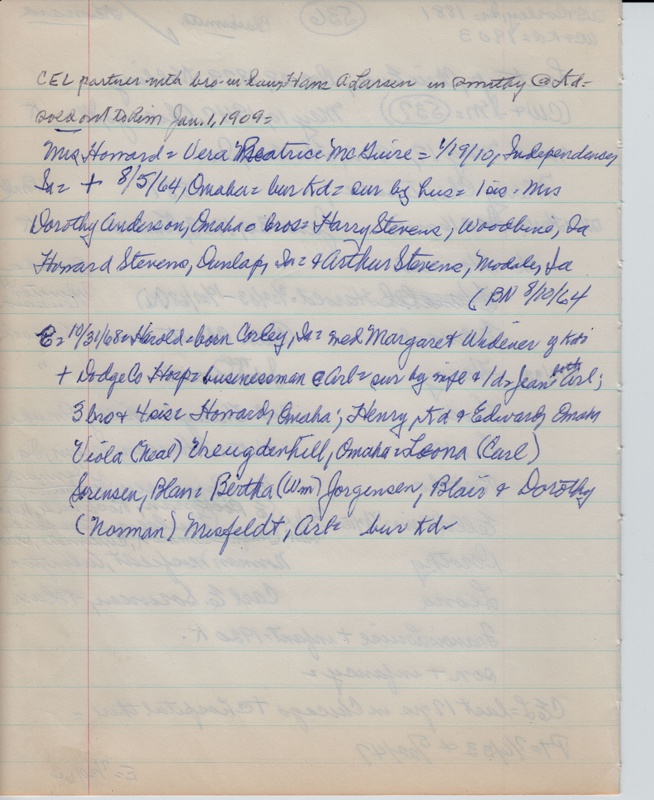 CEL partner with bro-in law, Hans A Larsen in smithy @ Kd =
sold out to him Jan. 1, 1909 =
Mrs Howard = Vera Beatrice McGuire = 1/19/10, Independence,
Ia = + 8/5/64, Omaha = bur Kd = sur by hus = 1 sis - Mrs
Dorothy Anderson, Omaha & bros = Harry Stevens, Woodbine, Ia
Howard Stevens, Dunlap, Ia = & Arthur Stevens, Modale, Ia
(BN 8/10/64
E = 10/31/68 = Herold = born Corley, Ia = med Margaret Widener of Kd
+ Dodge Co Hosp = businessman @ Arl = sur by wife & 1 d = Jean both Arl;
3 bro & 4 sis = Howard, Omaha; Henry, Kd & Edward, Omaha
Viola (Neal) Vreugdenhill, Omaha = Leona (Carl)
Sorensen, Blair = Bertha (Wm) Jorgensen, Blair & Dorothy
(Norman) Misfeldt, Arl = bur Kd